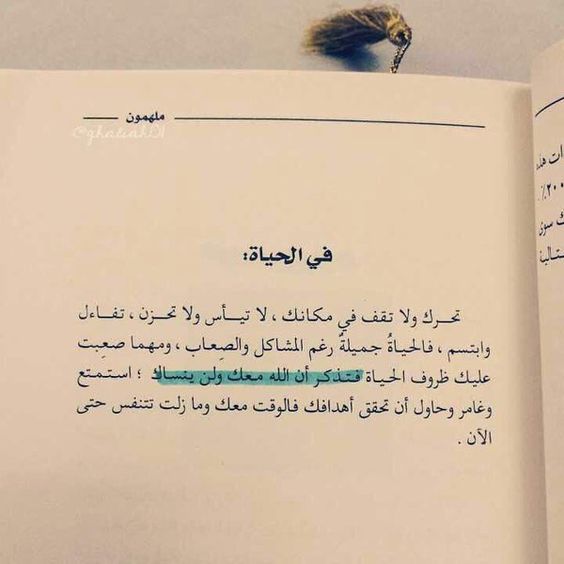 ملهمون
@ghaliah101
في الحياة:
تحرك ولا تقف في مكانك ، لا تيـأس ولا تحـزن ، تفـاءل
وابتسم ، فـالحياةُ جميلةٌ رغم المشاكل والصِعاب ، ومهما صعِبت
عليك ظروف الحيـاة فـتـذكـر أن الله مـعـك ولـن ينسـاك ؛ استـمـتع
وغامر وحاول أن تحقق أهدافك فالوقت معك وما زلت تتنفس حتى
الآن .
ات هذه
٢٠٠٪
ك سوى